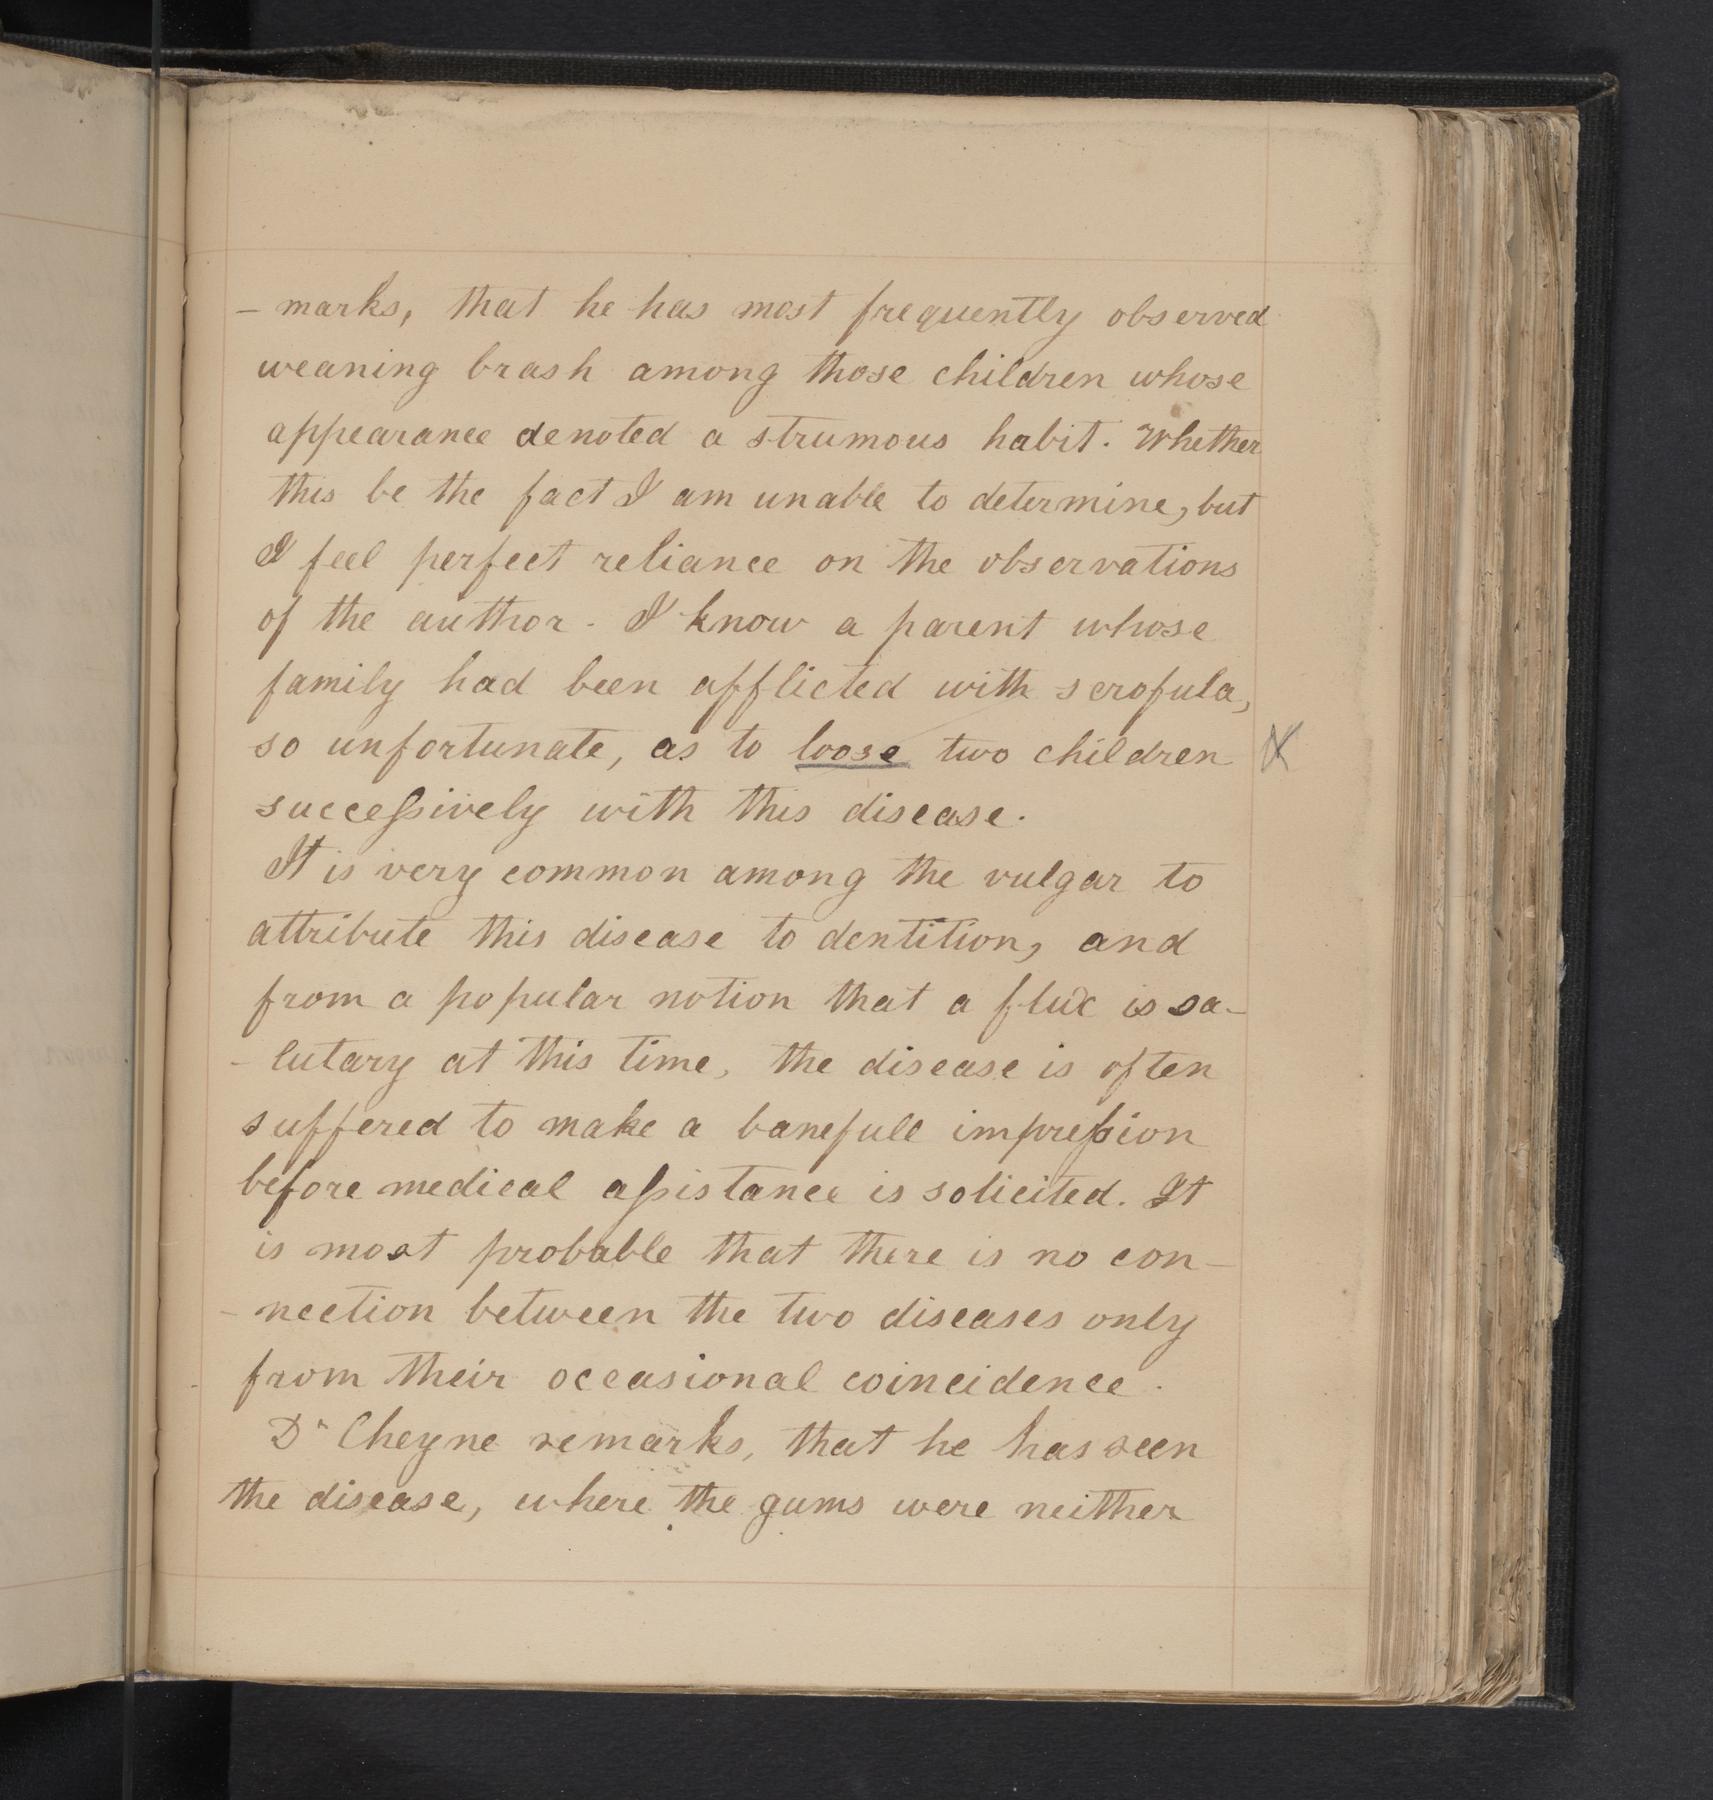 - marks, that he has most frequently observed
weaning brash among those children whose
appearance denoted a strumous habit. Whether
this be the fact I am unable to determine, but
I feel perfect reliance on the observations
of the author. I know a parent whose
family had been afflicted with scrofula,
so unfortunate, as to loose two children X
successively with this disease.
It is very common among the vulgar to
attribute this disease to dentition, and
from a popular notion that a flux is sa-
- lutary at this time, the disease is often
suffered to make a banefull impression
before medical assistance is solicited. It
is most probable that there is no con-
- nection between the two diseases only
from their occasional coincidence.
Dr Cheyne remarks, that he has seen
the disease, where the gums were neither